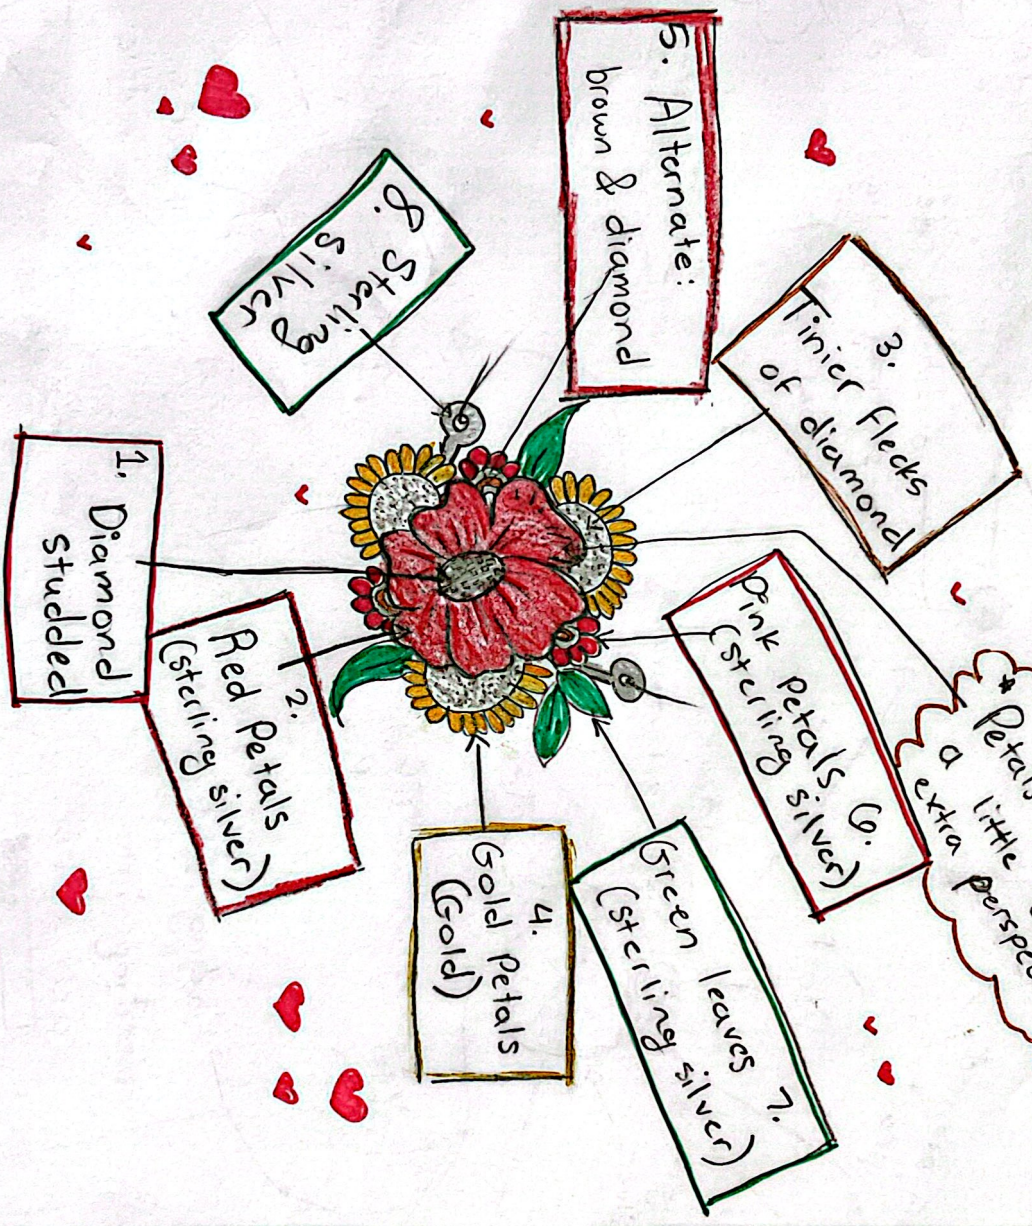 1. Diamond
studded
2.
Red Petals
(sterling silver)
3.
Tinier flecks
of diamond
4.
Gold Petals
(Gold)
5. Alternate:
brown & diamond
Pink Petals 6.
(sterling silver)
Green leaves 7.
(sterling silver)
8. Sterling
silver
* Petals
a little
extra